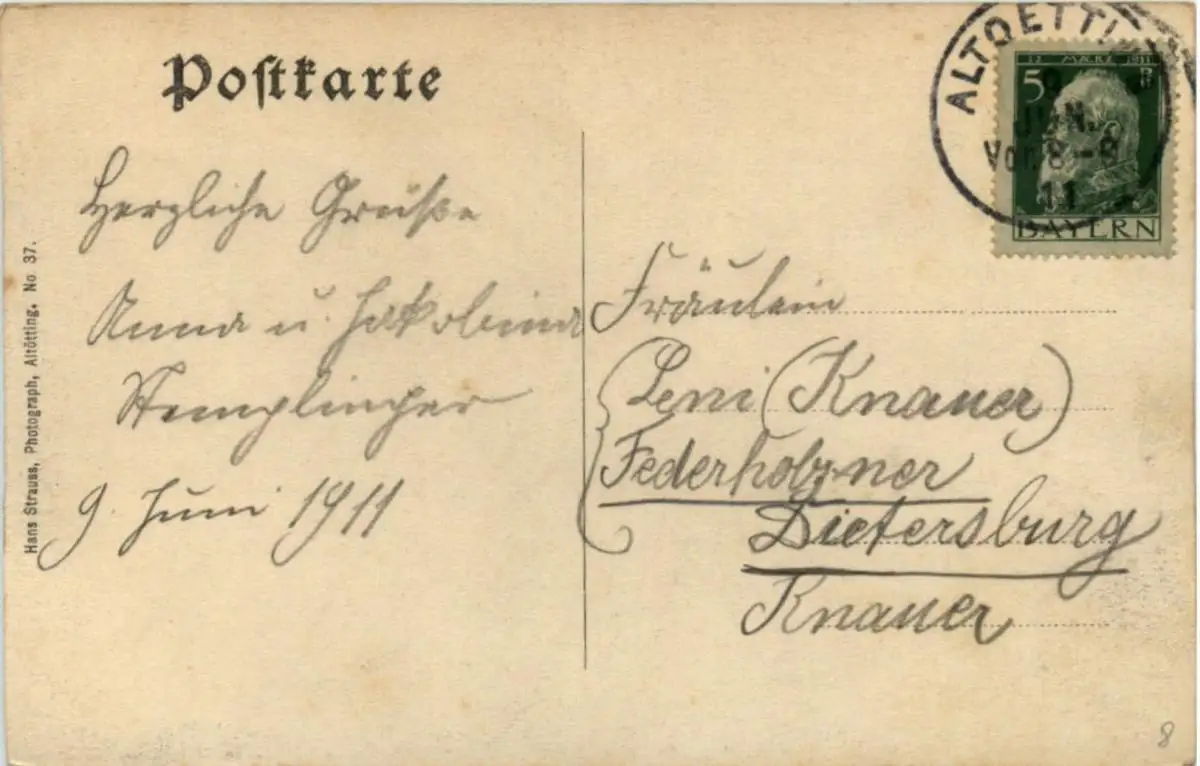 Postkarte
Herzliche Grüße
Anna u. Jakobina
Stemplinger
9. Juni 1911
Hans Strauss, Photograph, Altötting. No 37.
ALTOETTI
12. MÆRZ 1911
5
9
JUN.
Vor. 8-9
11
BAYERN
Fräulein
Leni (Knauer)
Federholzner
Dietersburg
Knauer
8